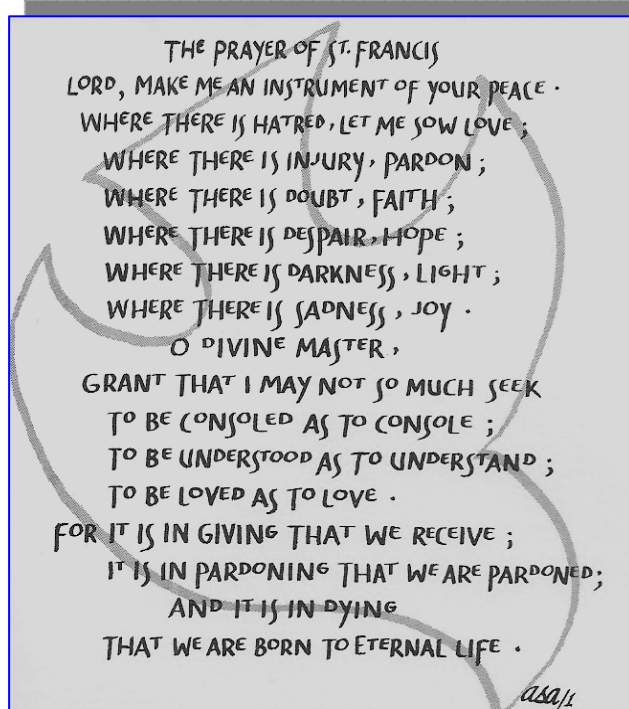 THE PRAYER OF ST. FRANCIS
LORD, MAKE ME AN INSTRUMENT OF YOUR PEACE.
WHERE THERE IS HATRED, LET ME SOW LOVE;
WHERE THERE IS INJURY, PARDON;
WHERE THERE IS DOUBT, FAITH;
WHERE THERE IS DESPAIR, HOPE;
WHERE THERE IS DARKNESS, LIGHT;
WHERE THERE IS SADNESS, JOY.
O DIVINE MASTER,
GRANT THAT I MAY NOT SO MUCH SEEK
TO BE CONSOLED AS TO CONSOLE;
TO BE UNDERSTOOD AS TO UNDERSTAND;
TO BE LOVED AS TO LOVE.
FOR IT IS IN GIVING THAT WE RECEIVE;
IT IS IN PARDONING THAT WE ARE PARDONED;
AND IT IS IN DYING
THAT WE ARE BORN TO ETERNAL LIFE.
asa/1